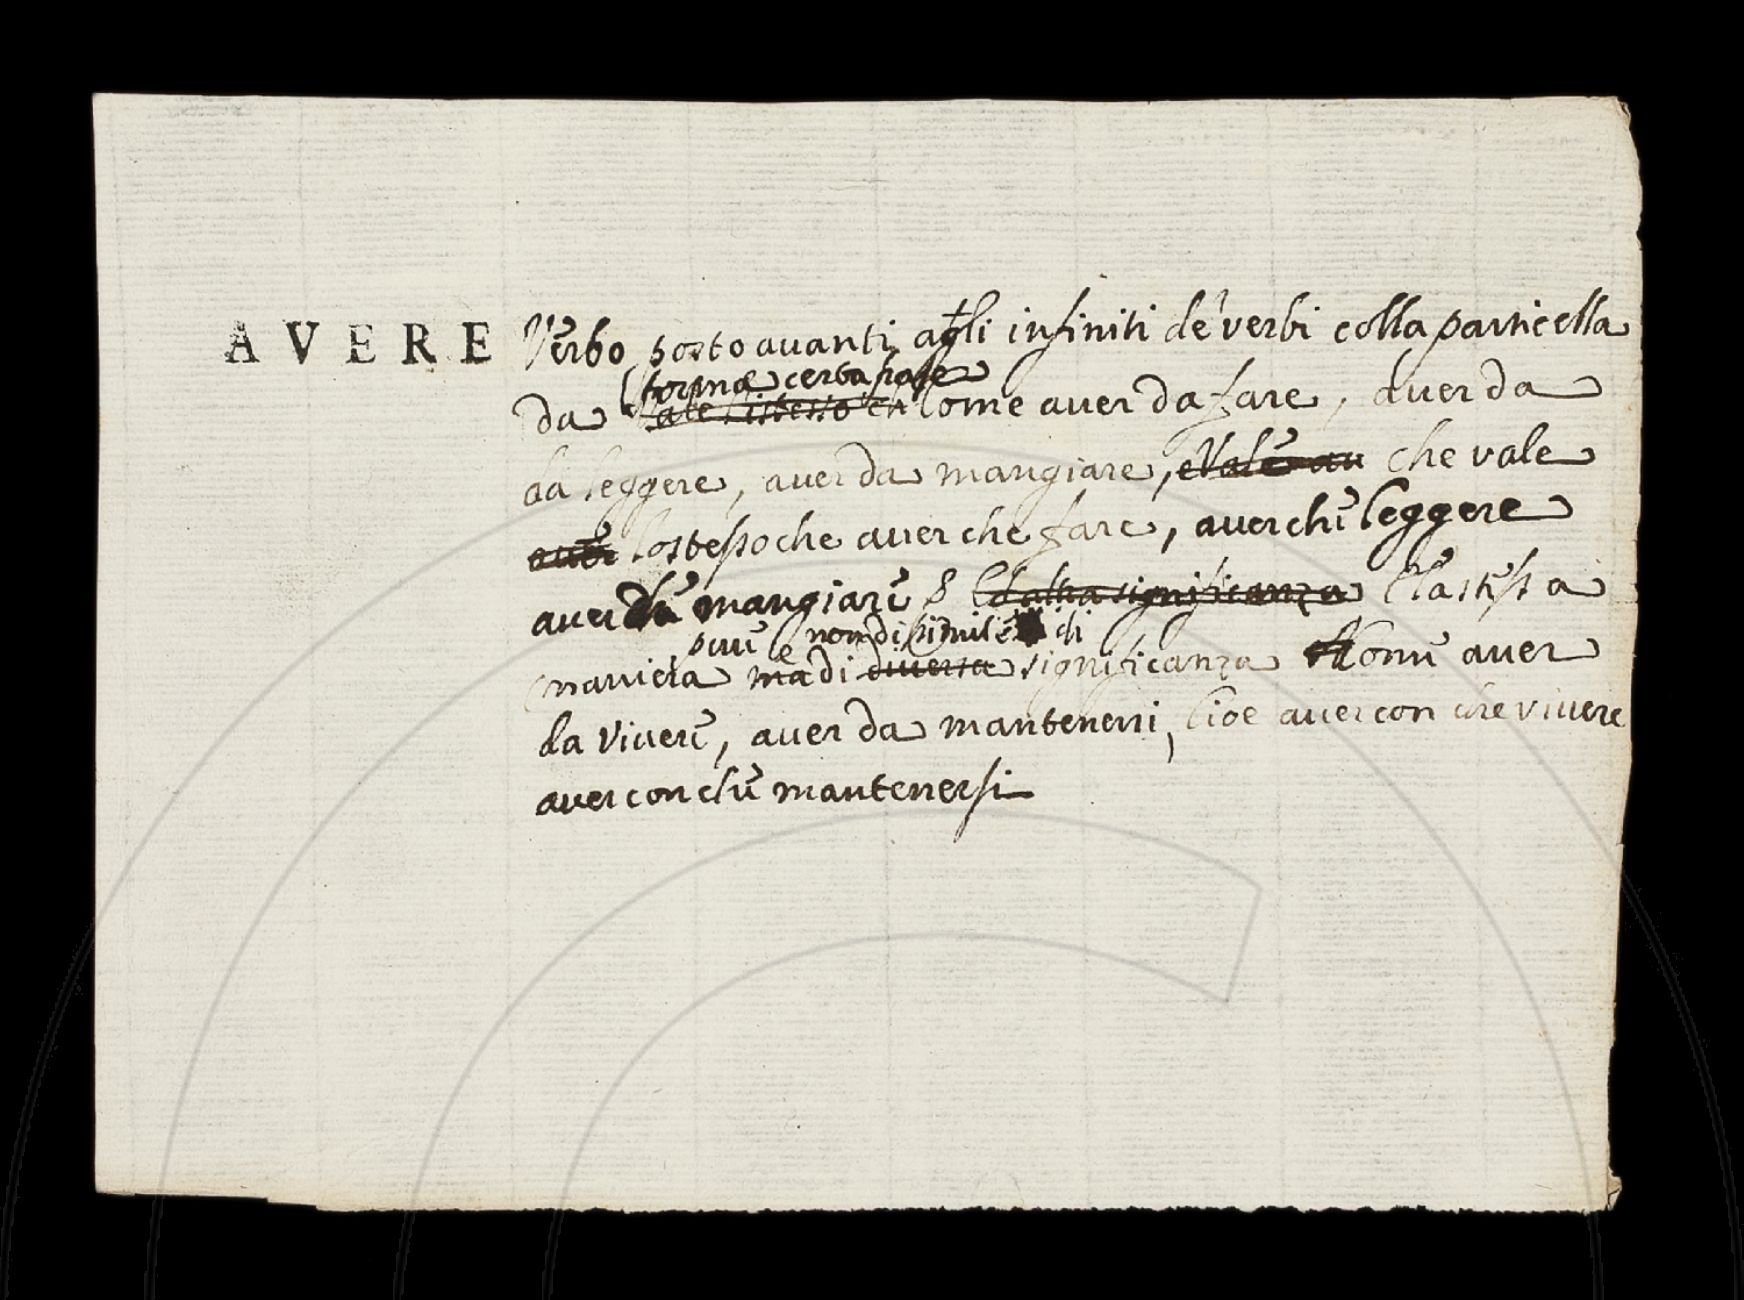 AVERE Verbo posto avanti agli infiniti de' verbi colla particella
forma certa frase
da vale l'istesso ch come aver da fare, aver da
da leggere, aver da mangiare, e vale av che vale
aver lo stesso che aver che fare, aver che leggere
aver che mangiare & ed altra significanza e la stessa
pure e non dissimile di
maniera ma di diversa significanza come aver
da vivere, aver da mantenersi, cioè aver con che vivere
aver con che mantenersi